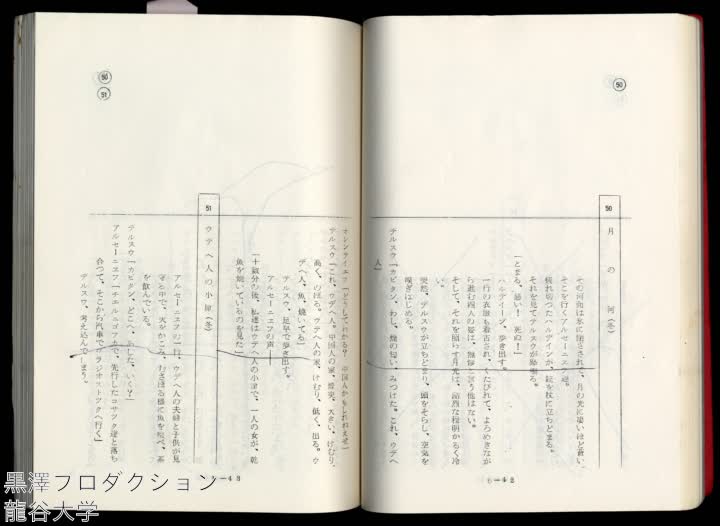 50
50
月の河(冬)
その河面は氷に閉されて、月の光に凄いほど蒼い。
そこを行くアルセーニエフ達。
疲れ切つたハルデインが、銃を杖に立ちどまる。
それを見てデルスウが怒鳴る。
「とまる、悪い! 死ぬ!」
ハルディーン、歩き出す。
一行の衣服も着古され、くたびれて、よろめきなが
ら進む四人の姿は、無惨と言う他はない。
そして、それを照らす月光は、詰烈な程明かるく冷
突然、デルスウが立ちどまり、頭をそらし、空気を
嗅ぎはじめる。
デルスウ「カピタン、わし、煙の匂い、みつけた。これ、ウデヘ
人」
6—42
50
51
オレンティエフ「どうしてわかる? 中国人かもしれねえぜ」
デルスウ「これ、ウデヘ人。中国人の家、煙突、大きい、けむり、
高く、のぼる。ウデヘ人の家、けむり、低く、出る。ウ
デヘ人、魚、焼いてる」
デルスウ、足早で歩き出す。
アルセーニエフの声—
「十数分の後、私達はウデヘ人の小屋で、一人の女が、乾
魚を焼いているのを見た」
51
ウデヘ人の小屋(冬)
アルセーニエフの一行、ウデヘ人の夫婦と子供が見
守る中で、火をかこみ、むさぼる様に魚を喰べ、茶
を飲んでいる。
デルスウ「カピタン、どこへ、あした、いく?」
アルセーニエフ「チエルニゴフカで、先行したコサツク達と落ち
合つて、そこから汽車でウラジオストツクへ行く」
デルスウ、考え込んでしまう。
6—43
黒澤プロダクション
龍谷大学